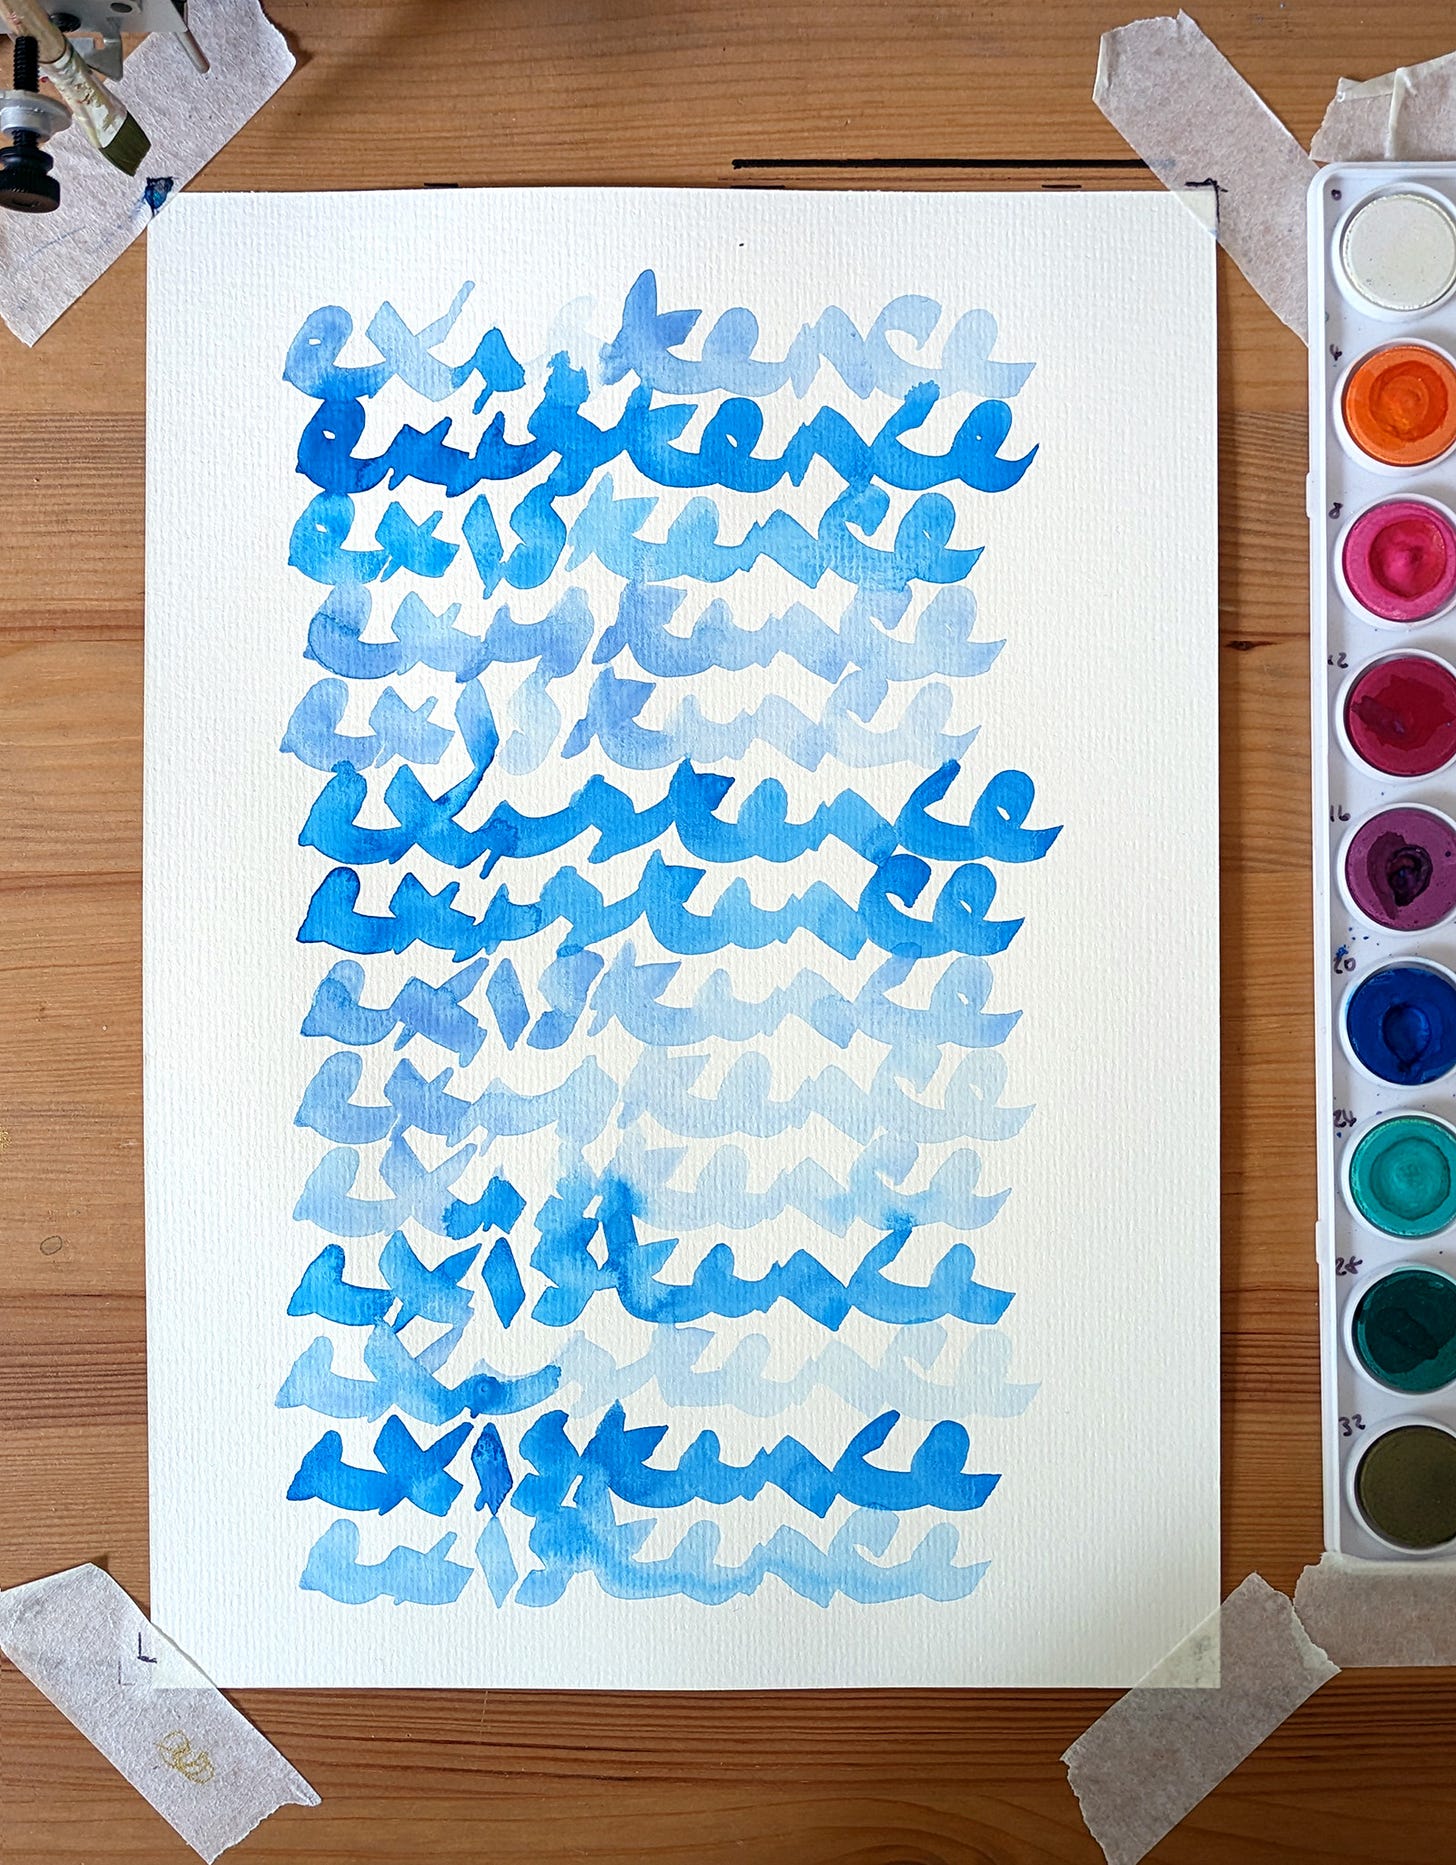 existence
existence
existence
existence
existence
existence
existence
existence
existence
existence
existence
existence
existence
existence
0
4
8
12
16
20
24
28
32